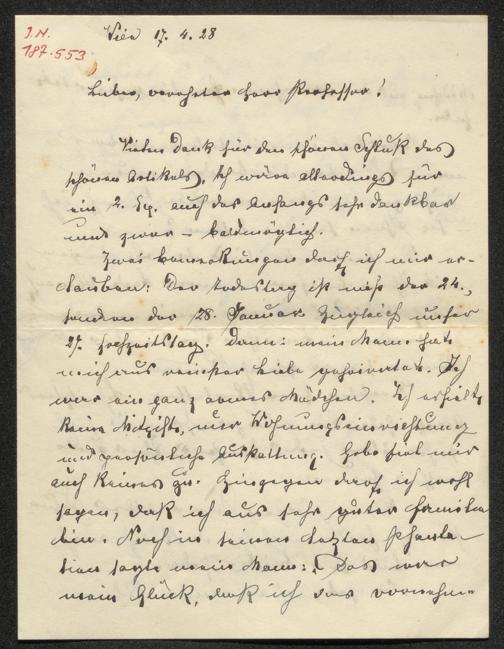 J.N.
187.553
Wien 17. 4. 28
Lieber, verehrter Herr Professor!
Vielen Dank für den schönen Schluß des
schönen Artikels. Ich wäre allerdings für
ein 2. Ex. auch des Anfangs sehr dankbar
und zwar – baldmöglich.
Zwei Bemerkungen darf ich mir er-
lauben: Der Todestag ist nicht der 24.,
sondern der 28. Januar zugleich unser
27. Hochzeitstag. Dann: mein Mann hat
mich aus reinster Liebe geheiratet. Ich
war ein ganz armes Mädchen. Ich erhielt
keine Mitgift, nur Wohnungseinrichtung
und persönliche Ausstattung. Habe fiel mir
auch keines zu. Hingegen darf ich wohl
sagen, daß ich aus sehr guter Familie
bin. Noch in seinen letzten Phanta-
sien sagte mein Mann: „Das war
mein Glück, daß ich das vornehme